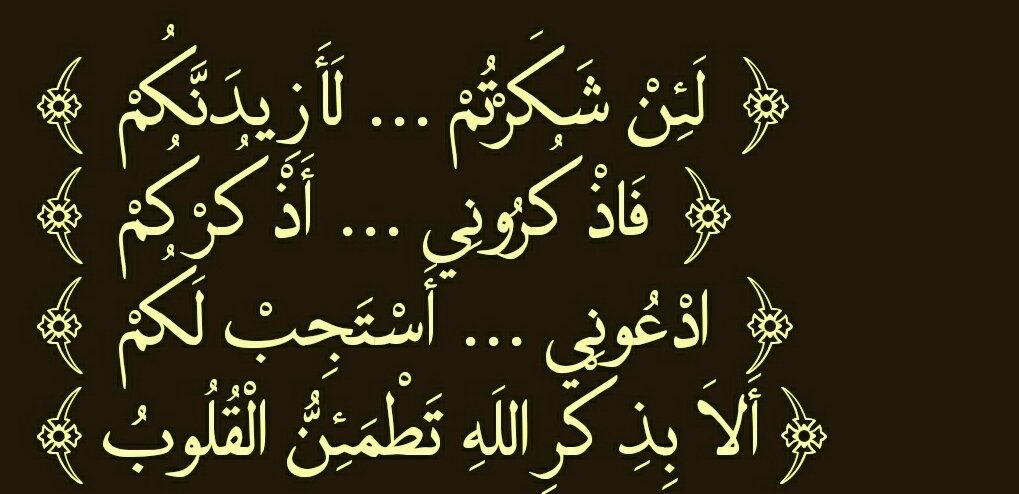 ﴿ لَئِنْ شَكَرْتُمْ ... لَأَزِيدَنَّكُمْ ﴾
﴿ فَاذْكُرُونِي ... أَذْكُرْكُمْ ﴾
﴿ ادْعُونِي ... أَسْتَجِبْ لَكُمْ ﴾
﴿ أَلاَ بِذِكْرِ اللَهِ تَطْمَئِنُّ الْقُلُوبُ ﴾